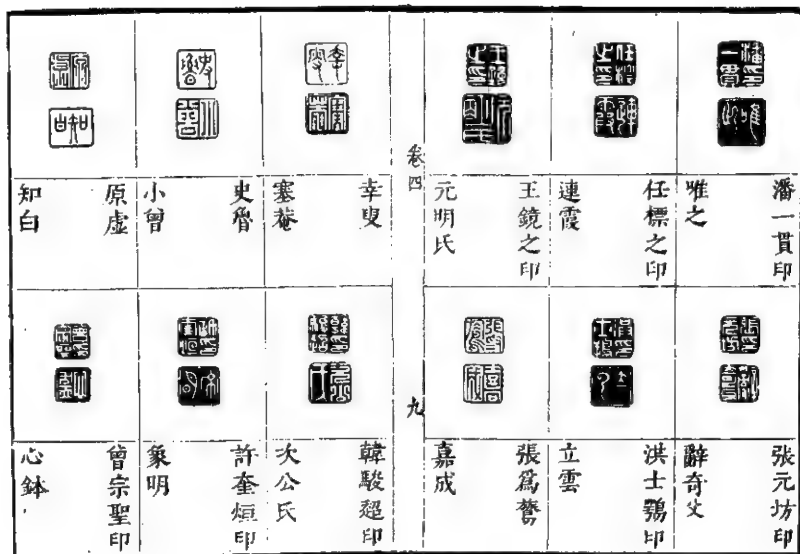 潘一貫印
唯之
任標之印
連霞
王鏡之印
元明氏
張元坊印
辭奇父
洪士鶚印
立雲
張為鶱
嘉成
卷四
九
幸叟
塞菴
史魯
小曾
原虛
知白
韓駿超印
次公氏
許奎烜印
象明
曾宗聖印
心鉢